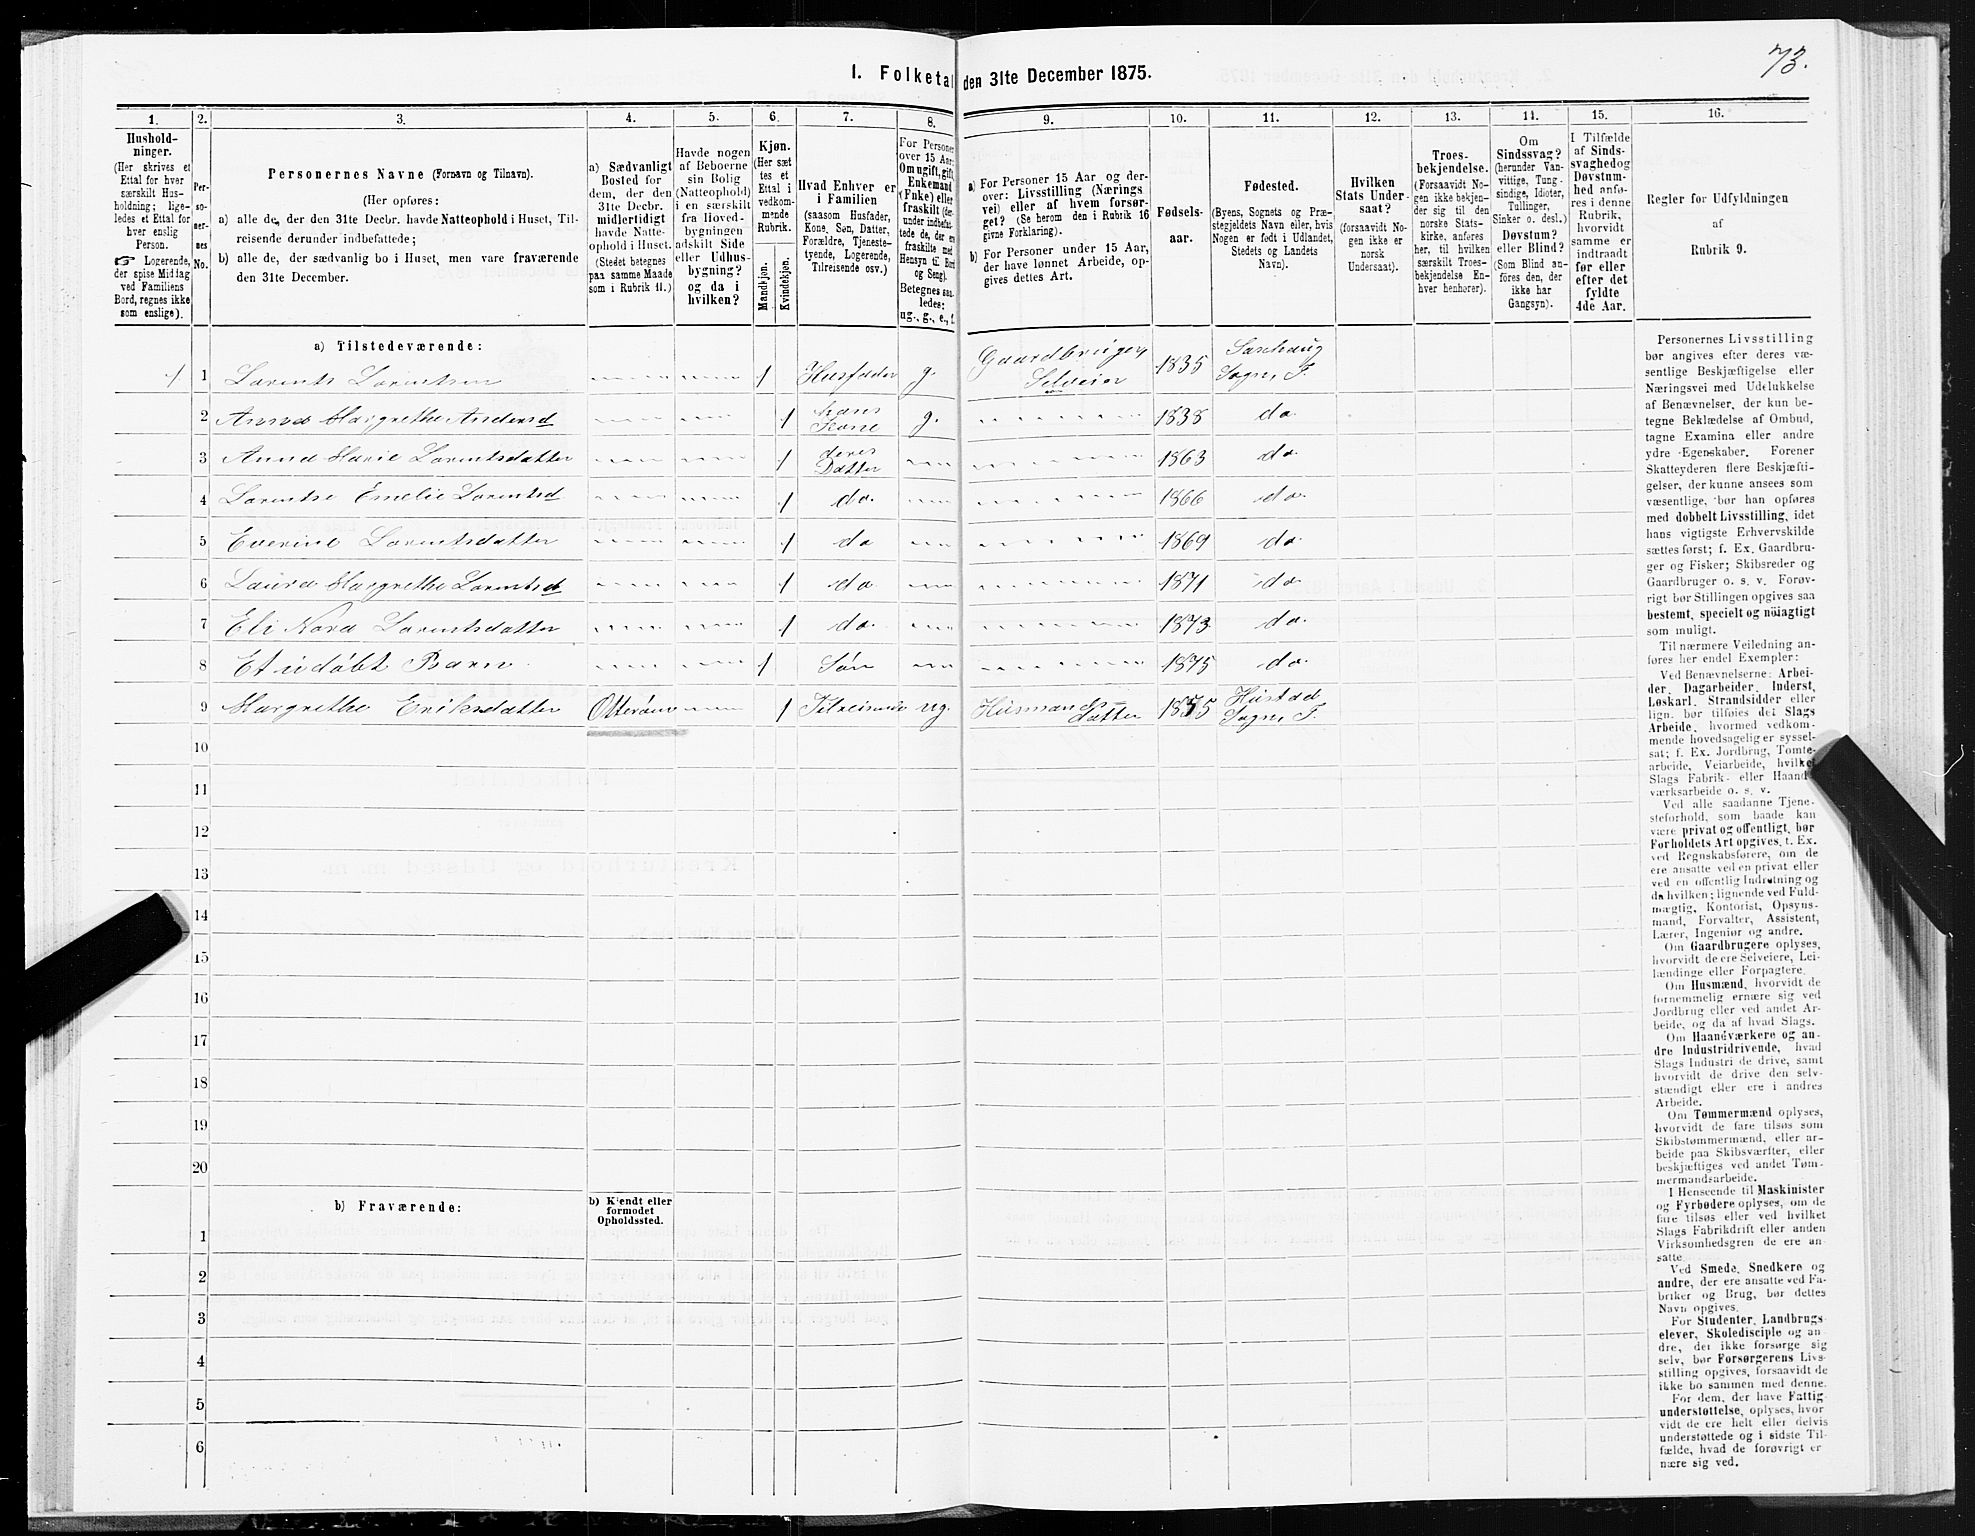 73.
I. Folketal den 31te December 1875.
1.
2.
3.
4.
5.
6.
7.
8.
9.
10.
11.
12.
13.
14.
15.
16.
Hushold-
ninger.
(Her skrives et
Ettal for hver
særskilt Hus-
holdning; lige-
ledes et Ettal for
hver enslig
Person.
☞ Logerende,
der spise Middag
ved Familiens
Bord, regnes ikke
som enslige).
Per-
so-
ner-
nes
No.
Personernes Navne (Fornavn og Tilnavn).
(Her opføres:
a) alle de, der den 31te Decbr. havde Natteophold i Huset, Til-
reisende derunder indbefattede;
b) alle de, der sædvanlig bo i Huset, men vare fraværende
den 31te December.
a) Sædvanligt
Bosted for
dem, der den
31te Decbr.
midlertidigt
havde Natte-
ophold i Huset.
(Stedet betegnes
paa samme Maade
som i Rubrik 11.)
Havde nogen
af Beboerne
sin Bolig
(Natteophold)
i en særskilt
fra Hoved-
bygningen
adskilt Side
eller Udhus-
bygning?
og da i
hvilken?
Kjøn.
(Her sæt-
tes et
Ettal i
vedkom-
mende
Rubrik.
Mandkjøn.
Kvindekjøn.
Hvad Enhver er
i Familien
(saasom Husfader,
Kone, Søn, Datter,
Forældre, Tjeneste-
tyende, Logerende,
Tilreisende osv.)
For Personer
over 15 Aar:
Om ugift, gift,
Enkemand
(Enke) eller
fraskilt (der-
under indbefat-
tede de, der er
fraskilte med
Hensyn til Bord
og Seng).
Betegnes saa-
ledes:
ug., g., e., f.
a) For Personer 15 Aar og der-
over: Livsstilling (Nærings
vei) eller af hvem forsør-
get? (Se herom den i Rubrik 16
givne Forklaring).
b) For Personer under 15 Aar,
der have lønnet Arbeide, op-
gives dettes Art.
Fødsels-
aar.
Fødested.
(Byens, Sognets og Præ-
stegjeldets Navn eller, hvis
Nogen er født i Udlandet,
Stedets og Landets
Navn).
Hvilken
Stats Under-
saat?
(forsaavidt No-
gen ikke er
norsk
Undersaat).
Troes-
bekjendelse.
(Forsaavidt No-
gen ikke bekjen-
der sig til den
norske Stats-
kirke, anføres
her, til hvilken
særskilt Troes-
bekjendelse En-
hver henhører).
Om
Sindssvag?
(herunder Van-
vittige, Tung-
sindige, Idioter,
Tullinger,
Sinker o. desl.)
Døvstum?
eller Blind?
(Som Blind an-
føres den, der
ikke har
Gangsyn).
I Tilfælde
af Sinds-
svaghed og
Døvstum-
hed anfø-
res i denne
Rubrik,
hvorvidt
samme er
indtraadt
før eller
efter det
fyldte
4de Aar.
Regler for Udfyldningen
af
Rubrik 9.
a) Tilstedeværende:
1 1 Lorents Lorentsen 1 Husfader g. Gaardbruger, Selveier 1835 Sogn, T.
2 Anna Margrethe Andersd 1 hans Kone g. 1838 do
3 Anna Marie Lorentsdatter 1 deres Datter 1863 do.
4 Lorentse Emelie Lorentsd 1 do. 1866 do.
5 Everine Lorentsdatter 1 do 1869 do.
6 Laura Margrethe Lorentsd 1 do. 1871 do.
7 Eli Nora Lorentsdatter 1 do. 1873 do.
8 Et udøbt Barn 1 Søn 1875 do.
9 Margrethe Eriksdatter Otterøen 1 Tilreisende ug. Husmands-datter 1855 Hustad Sogn, T.
10
11
12
13
14
15
16
17
18
19
20
b) Fraværende:
b) Kjendt eller
formodet
Opholdssted.
1
2
3
4
5
6
Personernes Livsstilling
bør angives efter deres væ-
sentlige Beskjæftigelse eller
Næringsvei med Udelukkelse
af Benævnelser, der kun be-
tegne Beklædelse af Ombud,
tagne Examina eller andre
ydre Egenskaber. Forener
Skatteyderen flere Beskjæfti-
gelser, der kunne ansees som
væsentlige, bør han opføres
med dobbelt Livsstilling, idet
hans vigtigste Erhvervskilde
sættes først; f. Ex. Gaardbru-
ger og Fisker; Skibsreder og
Gaardbruger o. s. v. Forøv-
rigt bør Stillingen opgives saa
bestemt, specielt og nöiagtigt
som muligt.
Til nærmere Veiledning an-
føres her endel Exempler:
Ved Benævnelserne: Arbei-
der, Dagarbeider, Inderst,
Løskarl, Strandsidder eller
lign. bør tilføies det Slags
Arbeide, hvormed vedkom-
mende hovedsagelig er syssel-
sat; f. Ex. Jordbrug, Tomte-
arbeide, Veiarbeide, hvilket
Slags Fabrik- eller Haand-
værksarbeide o. s. v.
Ved alle saadanne Tjene-
steforhold, som baade kan
være privat og offentligt, bør
Forholdets Art opgives, f. Ex.
ved Regnskabsførere, om de
ere ansatte ved en privat eller
ved en offentlig Indretning og
da hvilken; lignende ved Fuld-
mægtig, Kontorist, Opsyns-
mand, Forvalter, Assistent,
Lærer, Ingeniør og andre.
Om Gaardbrugere oplyses,
hvorvidt de ere Selveiere, Lei-
lændinge eller Forpagtere.
Om Husmænd, hvorvidt de
fornemmelig ernære sig ved
Jordbrug eller ved andet Ar-
beide, og da af hvad Slags.
Om Haandværkere og an-
dre Industridrivende, hvad
Slags Industri de drive, samt
hvorvidt de drive den selv-
stændigt eller ere i andres
Arbeide.
Om Tømmermænd oplyses,
hvorvidt de fare tilsøs som
Skibstømmermænd, eller ar-
beide paa Skibsværfter, eller
beskjæftiges ved andet Tøm-
mermandsarbeide.
I Henseende til Maskinister
og Fyrbødere oplyses, om de
fare tilsøs eller ved hvilket
Slags Fabrikdrift eller anden
Virksomhedsgren de ere an-
satte.
Ved Smede, Snedkere og
andre, der ere ansatte ved Fa-
briker og Brug, bør dettes
Navn opgives.
For Studenter, Landbrugs-
elever, Skoledisciple og an-
dre, der ikke forsørge sig
selv, bør Forsørgerens Livs-
stilling opgives, forsaavidt de
ikke bo sammen med denne.
For dem, der have Fattig-
understøttelse, oplyses, hvor
vidt de ere helt eller delvis
understøttede og i sidste Til-
fælde, hvad de forøvrigt er
nære sig ved.